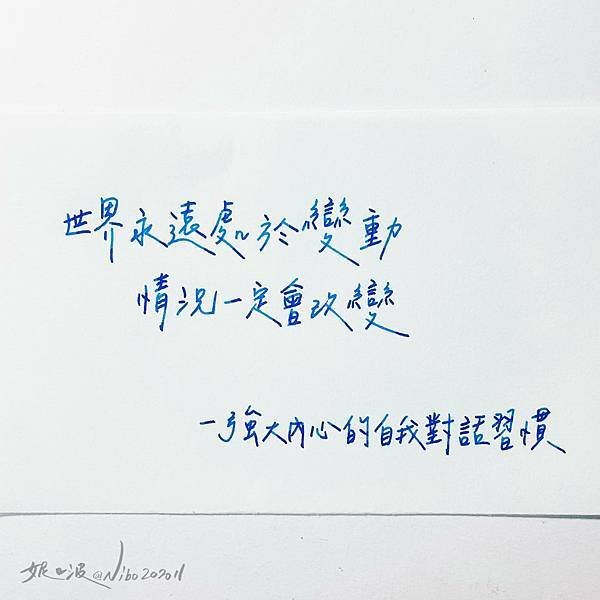 世界永遠處於變動
情況一定會改變
—強大內心的自我對話習慣
妮口波@Nibo202011